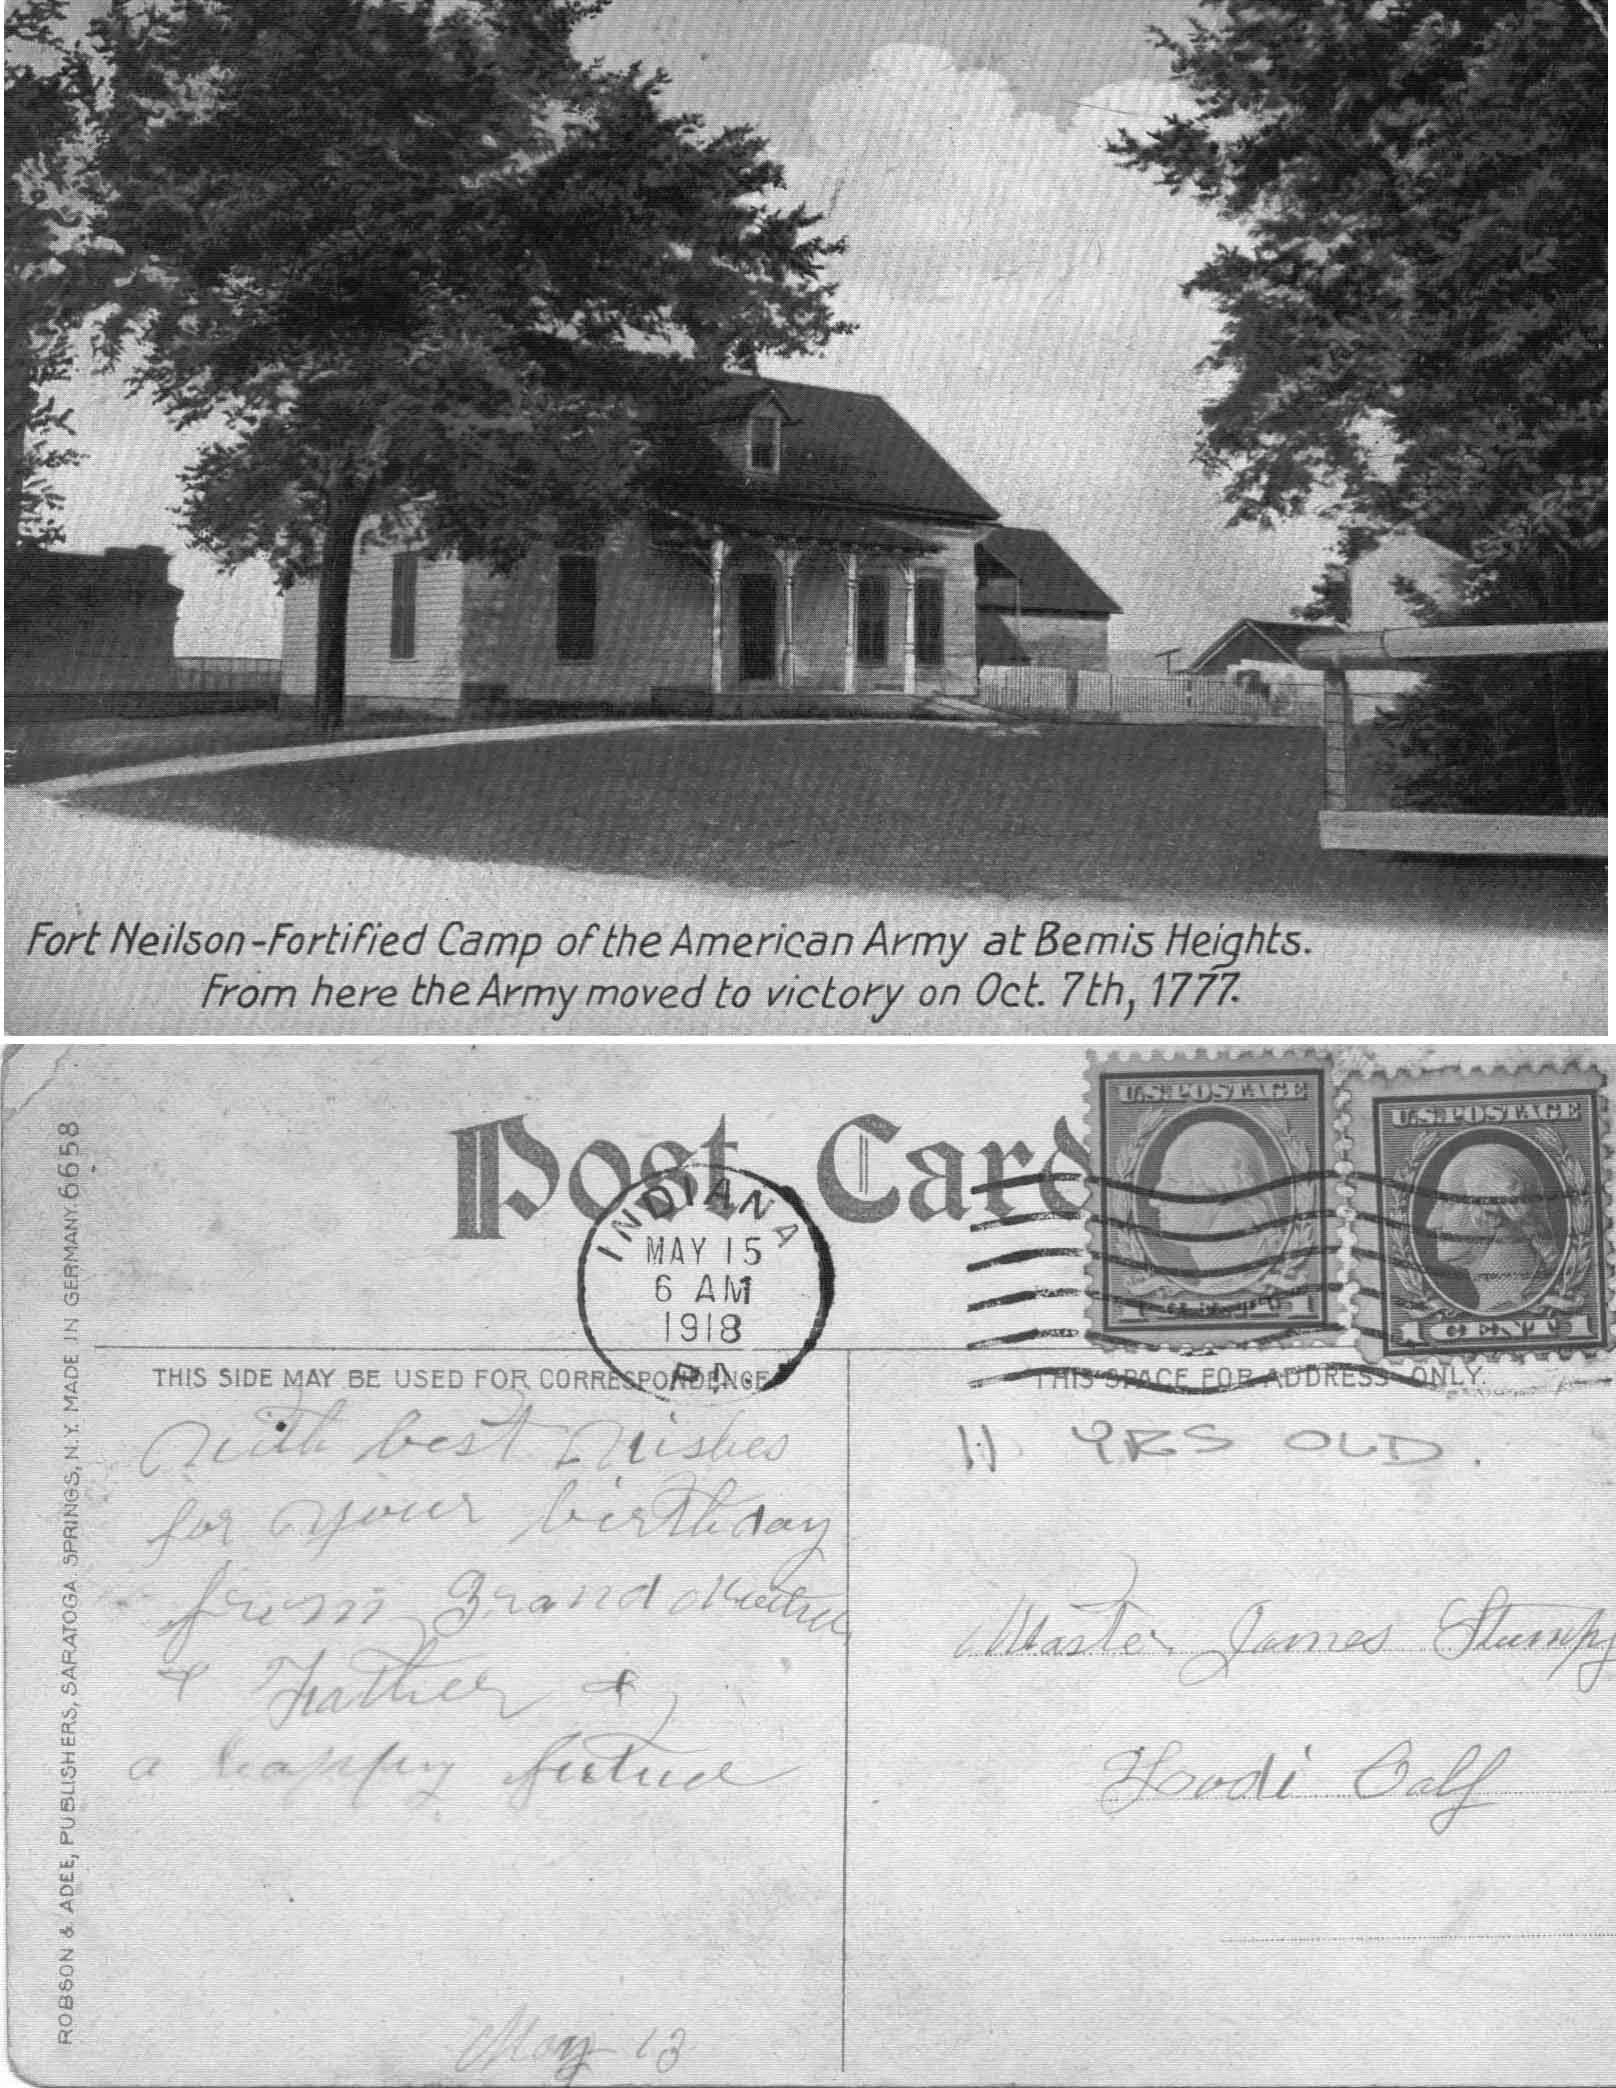 Fort Neilson-Fortified Camp of the American Army at Bemis Heights.
From here the Army moved to victory on Oct. 7th, 1777.
Post Card
U.S. POSTAGE
U.S. POSTAGE
1 CENT 1
1 CENT 1
INDIANA
MAY 15
6 AM
1918
PA.
THIS SIDE MAY BE USED FOR CORRESPONDENCE
THIS SPACE FOR ADDRESS ONLY.
ROBSON & ADEE, PUBLISHERS, SARATOGA SPRINGS, N.Y. MADE IN GERMANY. 6658
With best wishes
for your birthday
from Grand Mother
& Father &
a happy future
May 13
11 YRS OLD.
Master James Stump
Lodi Calf